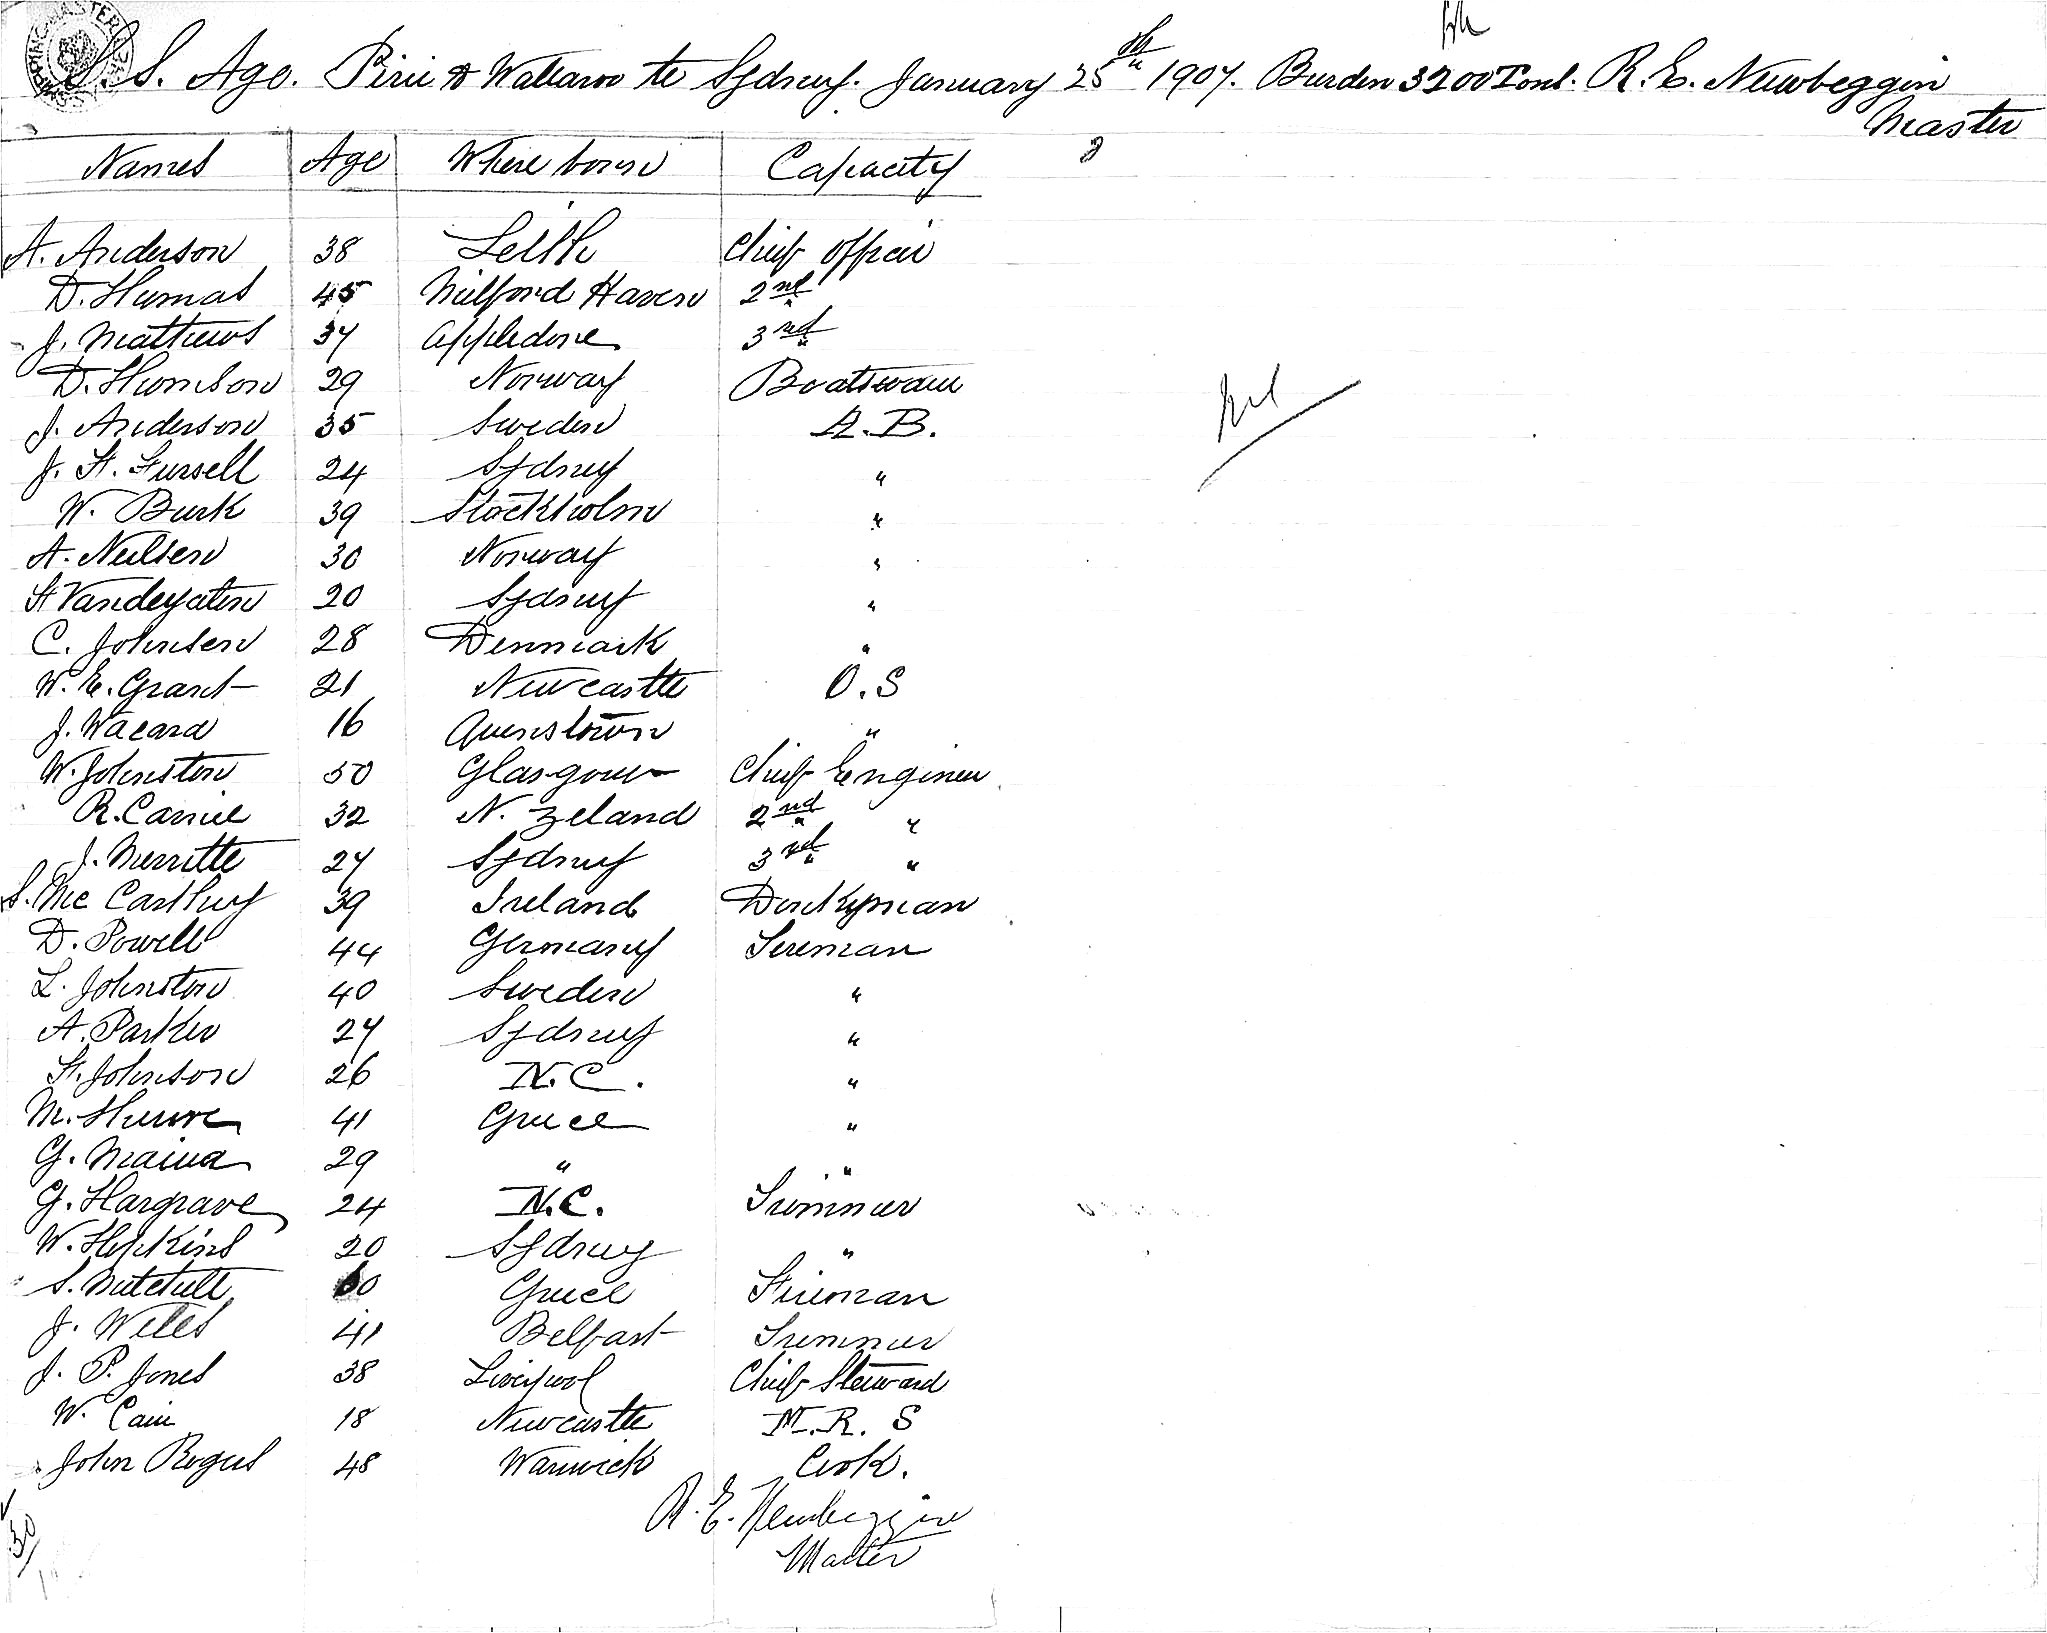 S. S. Age. Pirie & Wallaroo to Sydney. January 25th 1907. Burden 3200 Tons. R. E. Newbeggin
Master
Names Age Where born Capacity
A. Anderson 38 Leith Chief Officer
D. Thomas 45 Milford Haven 2nd "
J. Matthews 37 Appledore 3rd "
D. Thomson 29 Norway Boatswain
J. Anderson 35 Sweden A.B.
J. H. Fursell 24 Sydney "
W. Burk 39 Stockholm "
A. Neilsen 30 Norway "
H 20 Sydney "
C. Johnsen 28 Denmark "
W. E. Grant 21 Newcastle O.S
J. 16 Queenstown "
W. Johnston 50 Glasgow Chief Engineer
R. 32 N. Zeland 2nd "
J. Merritte 27 Sydney 3rd "
S. Mc Carthey 39 Ireland Donkeyman
D. Powell 44 Germany Fireman
L. Johnston 40 Sweden "
A. Parker 27 Sydney "
H. Johnson 26 N.C. "
M. 41 Greece "
G. 29 " "
G. Hargrave 24 N.C. Trimmer
W. Hopkins 20 Sydney "
S. Mitchell 60 Greece Fireman
J. Wells 41 Belfast Trimmer
J. P. Jones 38 Liverpool Chief Steward
W. Cain 18 Newcastle M.R.S
John Rogers 48 Warwick Cook.
R. E. Newbeggin
Master
30